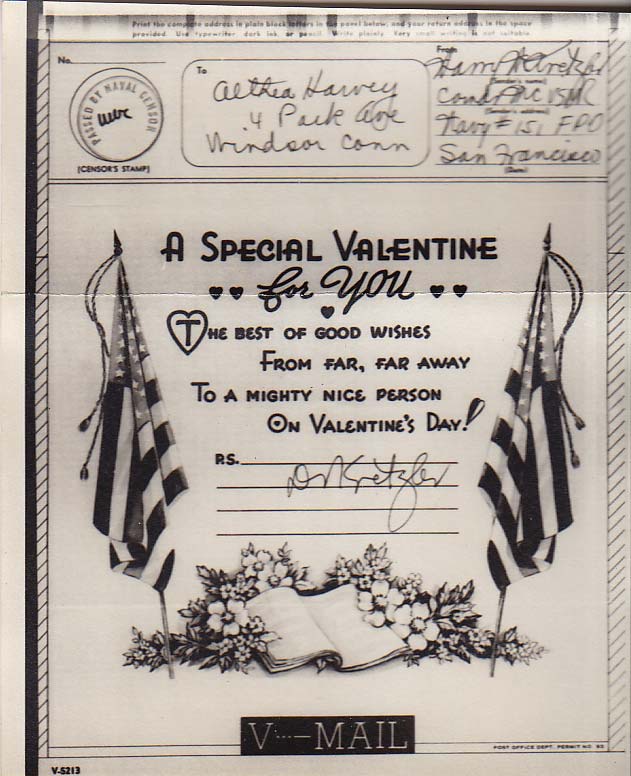 Print the complete address in plain block letters in the panel below, and your return address in the space
provided. Use typewriter, dark ink, or pencil. Write plainly. Very small writing is not suitable.
No.
PASSED BY NAVAL CENSOR
(CENSOR'S STAMP)
To
Althea Harvey
4 Park Ave
Windsor Conn
From
Kretzler
(Sender's name)
(Sender's address)
Navy # 151 FPO
San Francisco
(Date)
A SPECIAL VALENTINE
for YOU
THE BEST OF GOOD WISHES
FROM FAR, FAR AWAY
TO A MIGHTY NICE PERSON
ON VALENTINE'S DAY!
P.S.
Kretzler
V···—MAIL
POST OFFICE DEPT. PERMIT NO. 93
V-5213